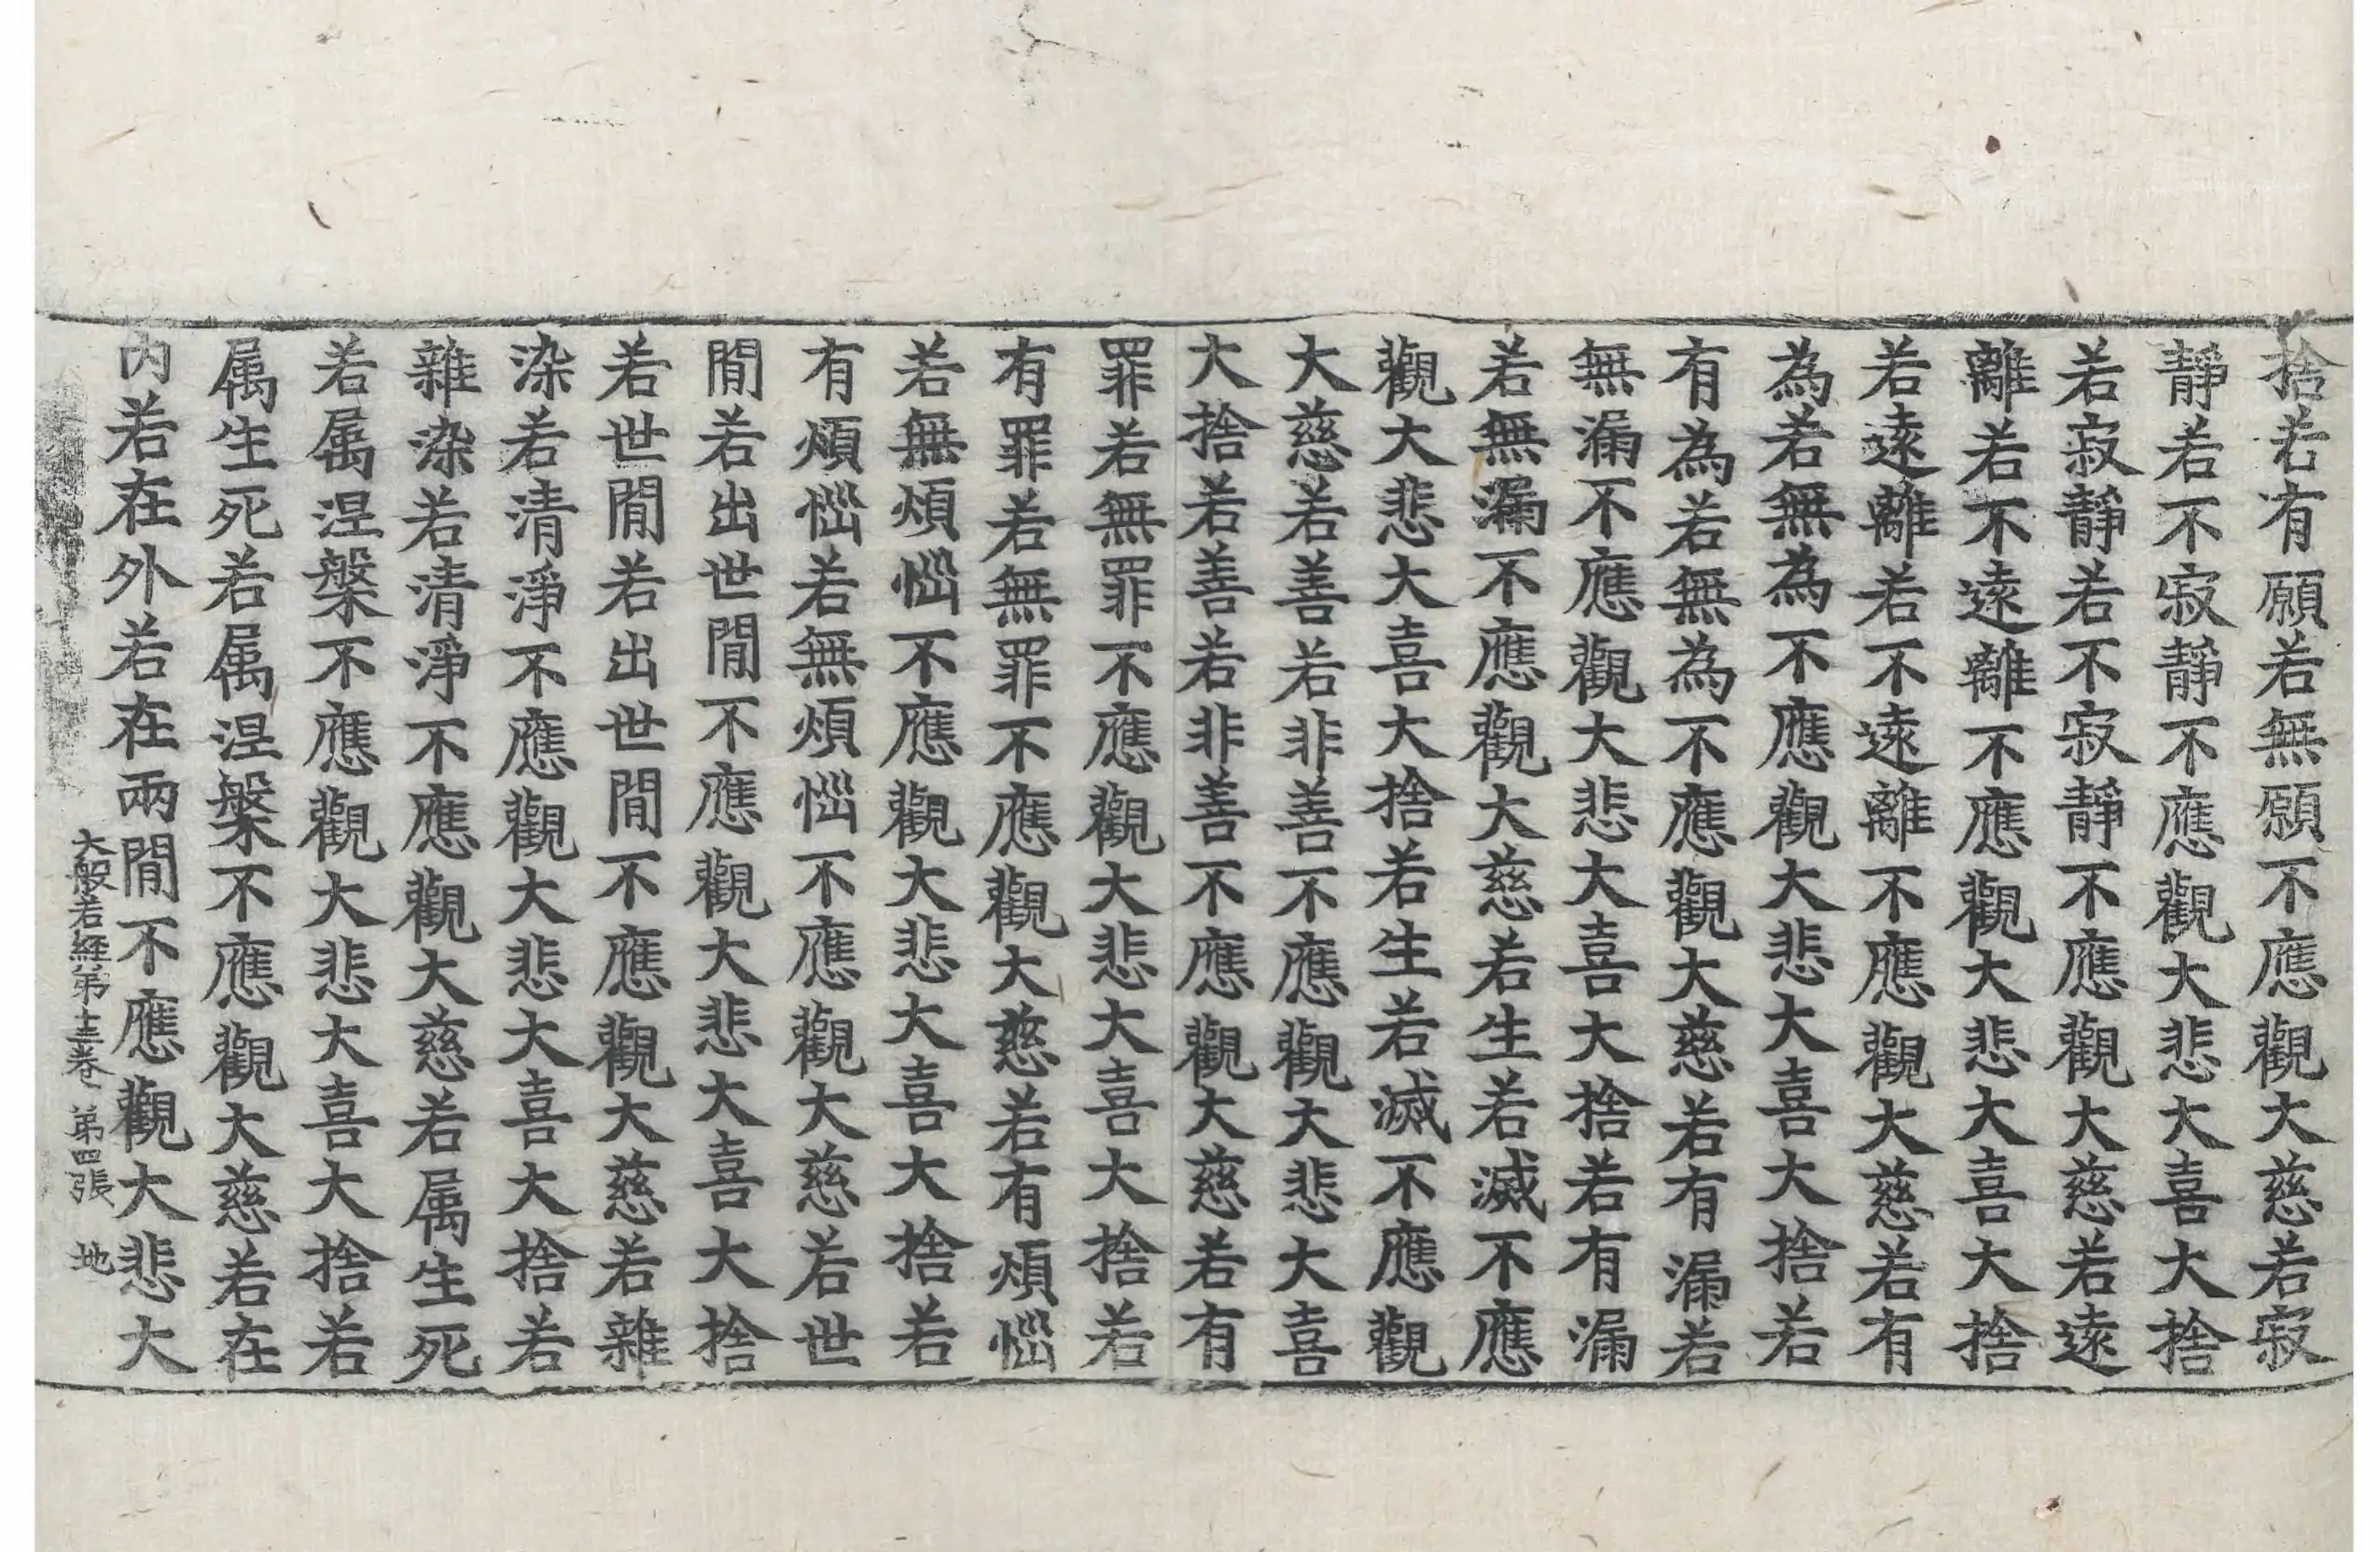 捨若有願若無願不應觀大慈若寂
靜若不寂靜不應觀大悲大喜大捨
若寂靜若不寂靜不應觀大慈若遠
離若不遠離不應觀大悲大喜大捨
若遠離若不遠離不應觀大慈若有
為若無為不應觀大悲大喜大捨若
有為若無為不應觀大慈若有漏若
無漏不應觀大悲大喜大捨若有漏
若無漏不應觀大慈若生若滅不應
觀大悲大喜大捨若生若滅不應觀
大慈若善若非善不應觀大悲大喜
大捨若善若非善不應觀大慈若有
罪若無罪不應觀大悲大喜大捨若
有罪若無罪不應觀大慈若有煩惱
若無煩惱不應觀大悲大喜大捨若
有煩惱若無煩惱不應觀大慈若世
閒若出世閒不應觀大悲大喜大捨
若世閒若出世閒不應觀大慈若雜
染若清淨不應觀大悲大喜大捨若
雜染若清淨不應觀大慈若属生死
若属涅槃不應觀大悲大喜大捨若
属生死若属涅槃不應觀大慈若在
內若在外若在兩閒不應觀大悲大
大般若經第十三卷 第四張 地